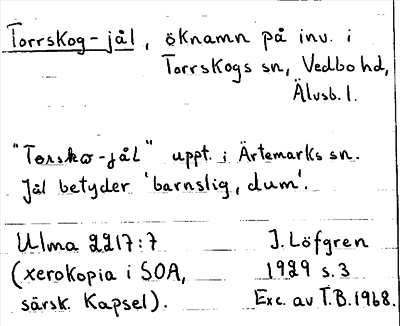 Torrskog-jål, öknamn på inv. i
Torrskogs sn, Vedbo hd,
Älvsb. l.
"Torskο-jål" uppt. i Ärtemarks sn.
Jål betyder 'barnslig, dum'.
Ulma 2217:7 J. Löfgren
(xerokopia i SOA, 1929 s.3
särsk. Kapsel). Exc. av T.B. 1968.